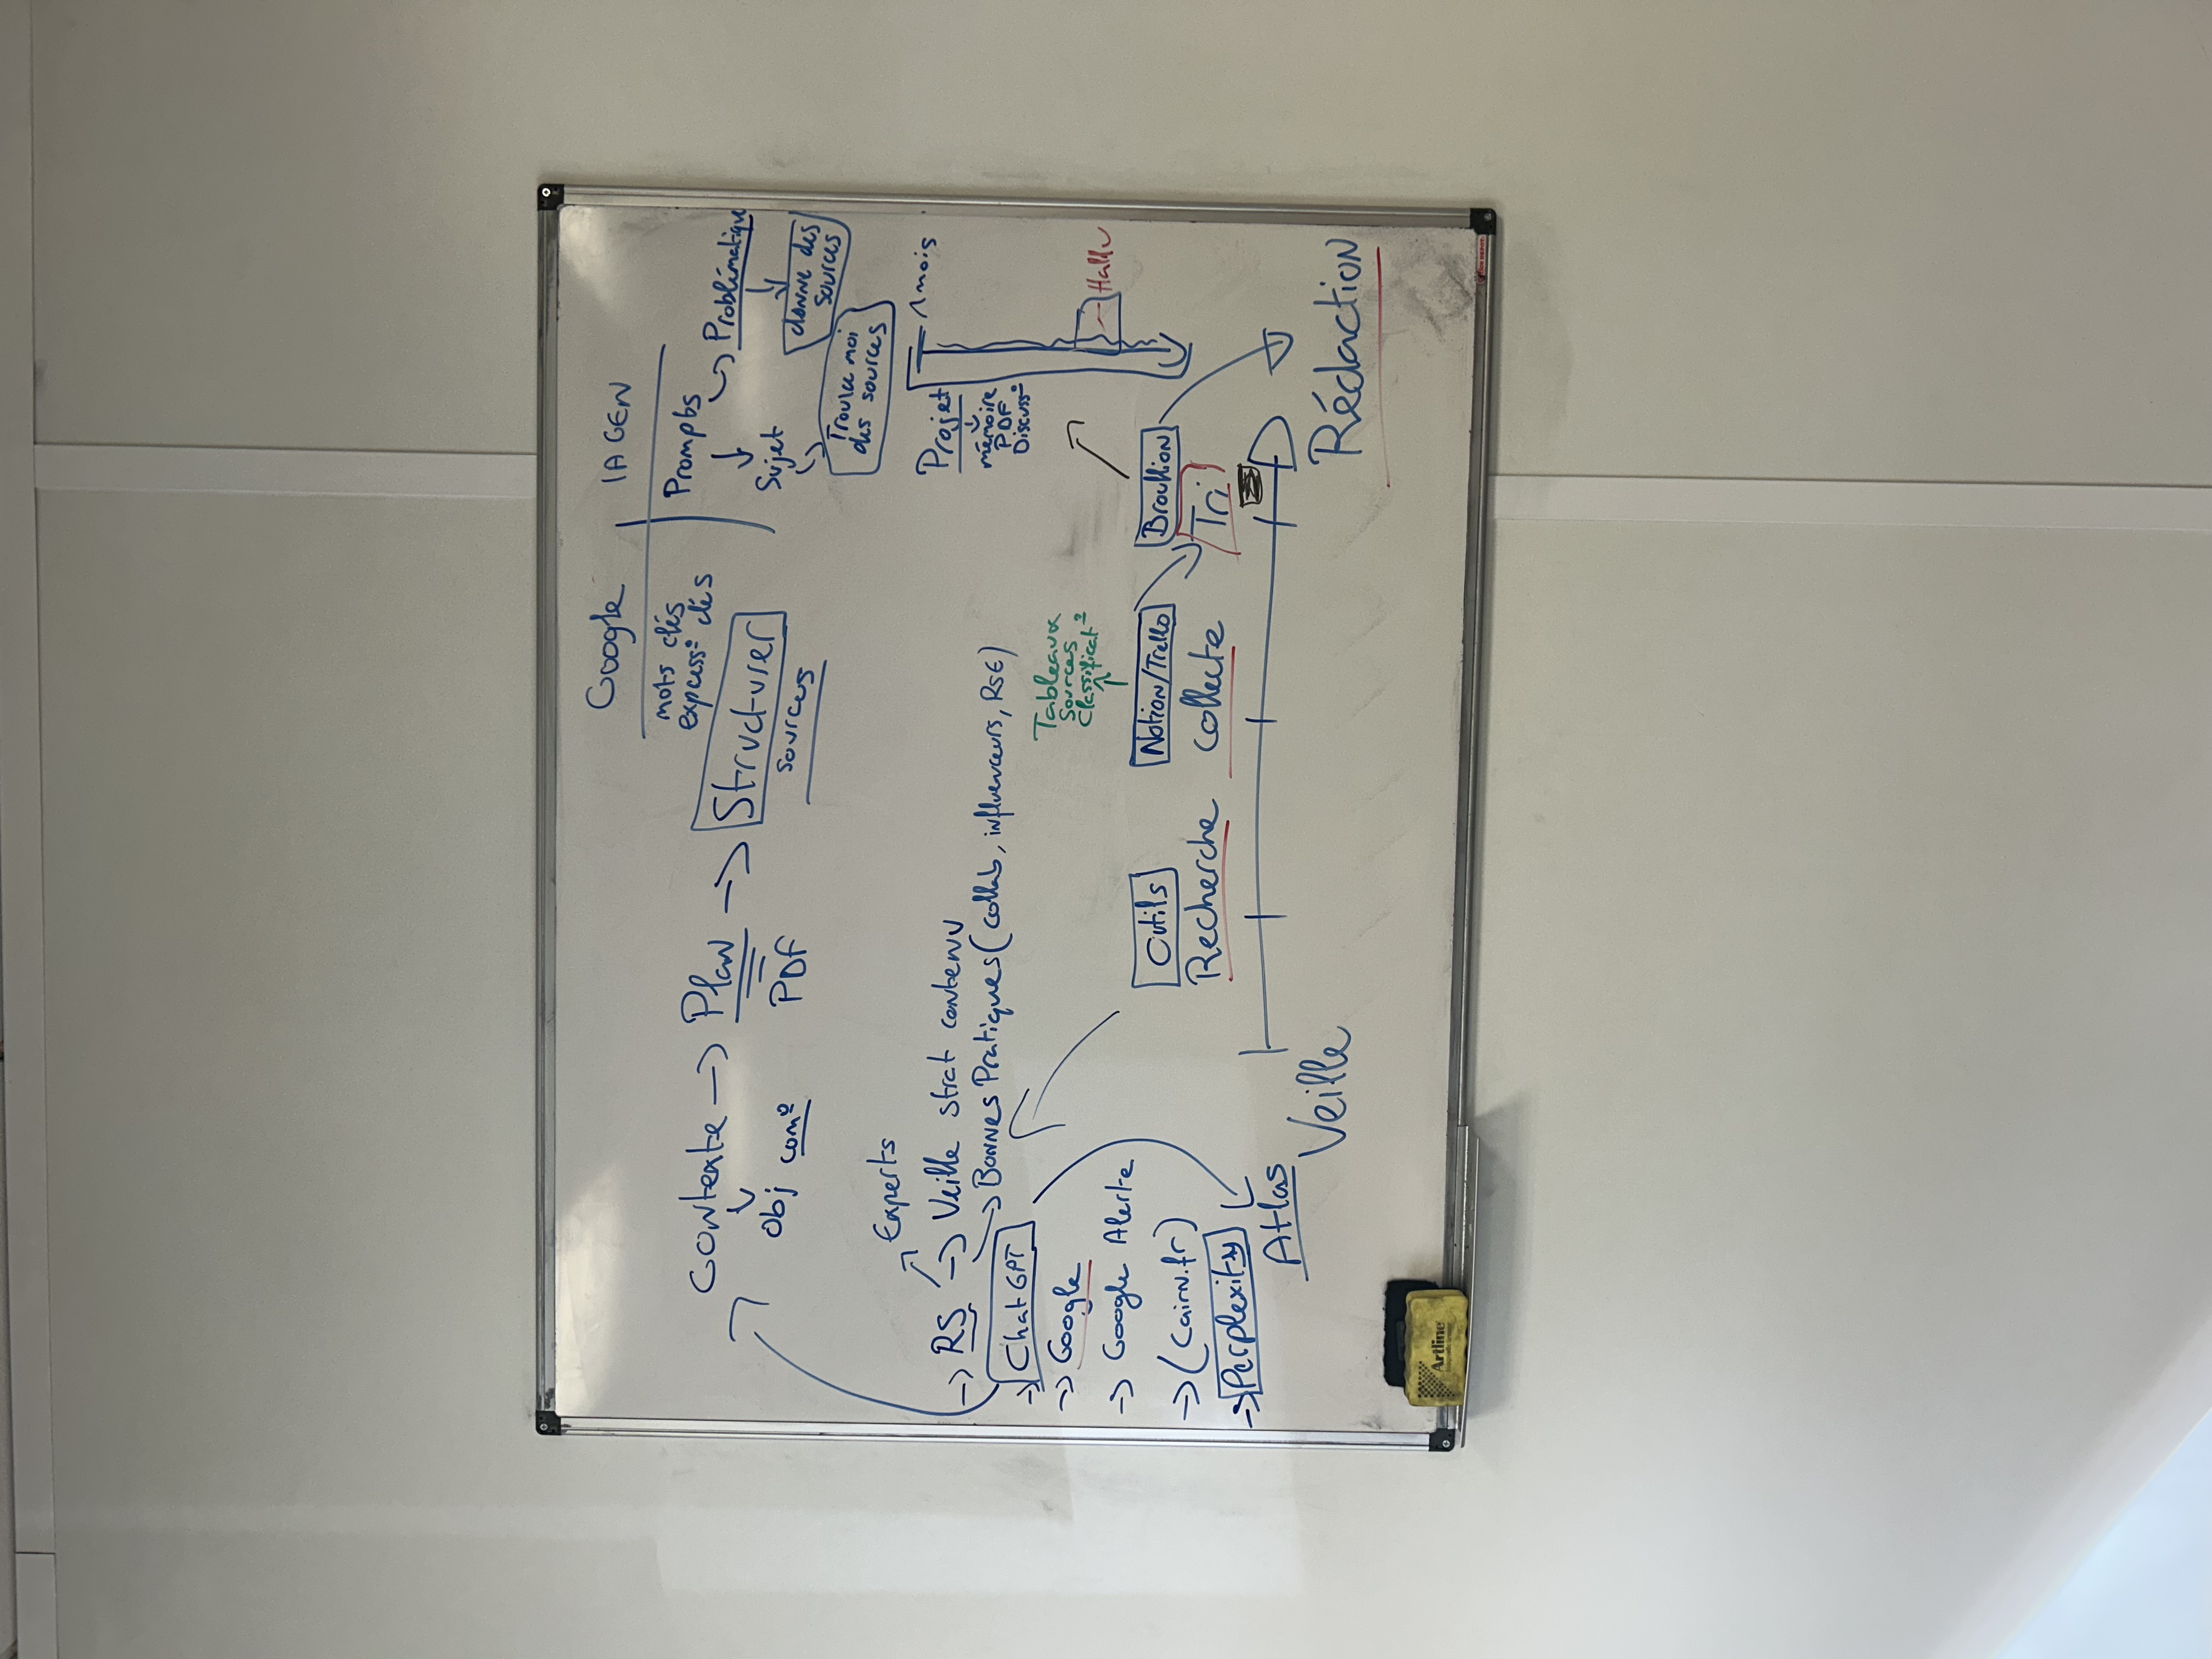 Google
IA GEN
mots clés
express° clés
Prompts
Problématique
Sujet
donne des
sources
Trouve moi
des sources
Contexte -> Plan -> Structurer
obj com°
PDF
sources
Experts
-> RS -> Veille strat contenu
-> Bonnes Pratiques (collab, influenceurs, RSE)
-> Chat GPT
-> Google
-> Google Alerte
-> (Cairn.fr)
-> Perplexity
Atlas
Projet
mémoire
PDF
Discuss°
1 mois
Hallu
Tableaux
Sources
Classificat°
Outils
Notion/Trello
Brouillon
Recherche
Collecte
Tri
Veille
Rédaction
Artline